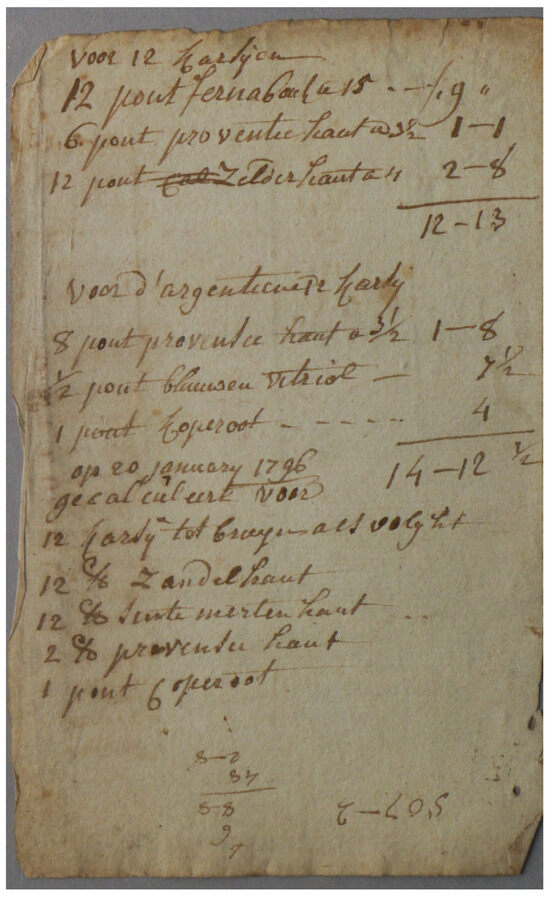 voor 12 karsijen
12 pont fernabock a 15 - - f 9 "
6 pont proventie haut a 3½ 1-1
12 pont Zelder haut a 4 2-8
12-13
voor d'argentiene karsy
8 pont provensee haut a 3½ 1-8
½ pont blauwen vitriol - 7½
1 pont koperoot - - - - - 4
op 20 january 1796 14-12 ½
gecalculeert voor
12 karsy tot bruyn als volght
12 ℔ Zandelhaut
12 ℔ sinte merten haut
2 ℔ provensee haut
1 pont Coperoot
8-2
87
8-8
9
7